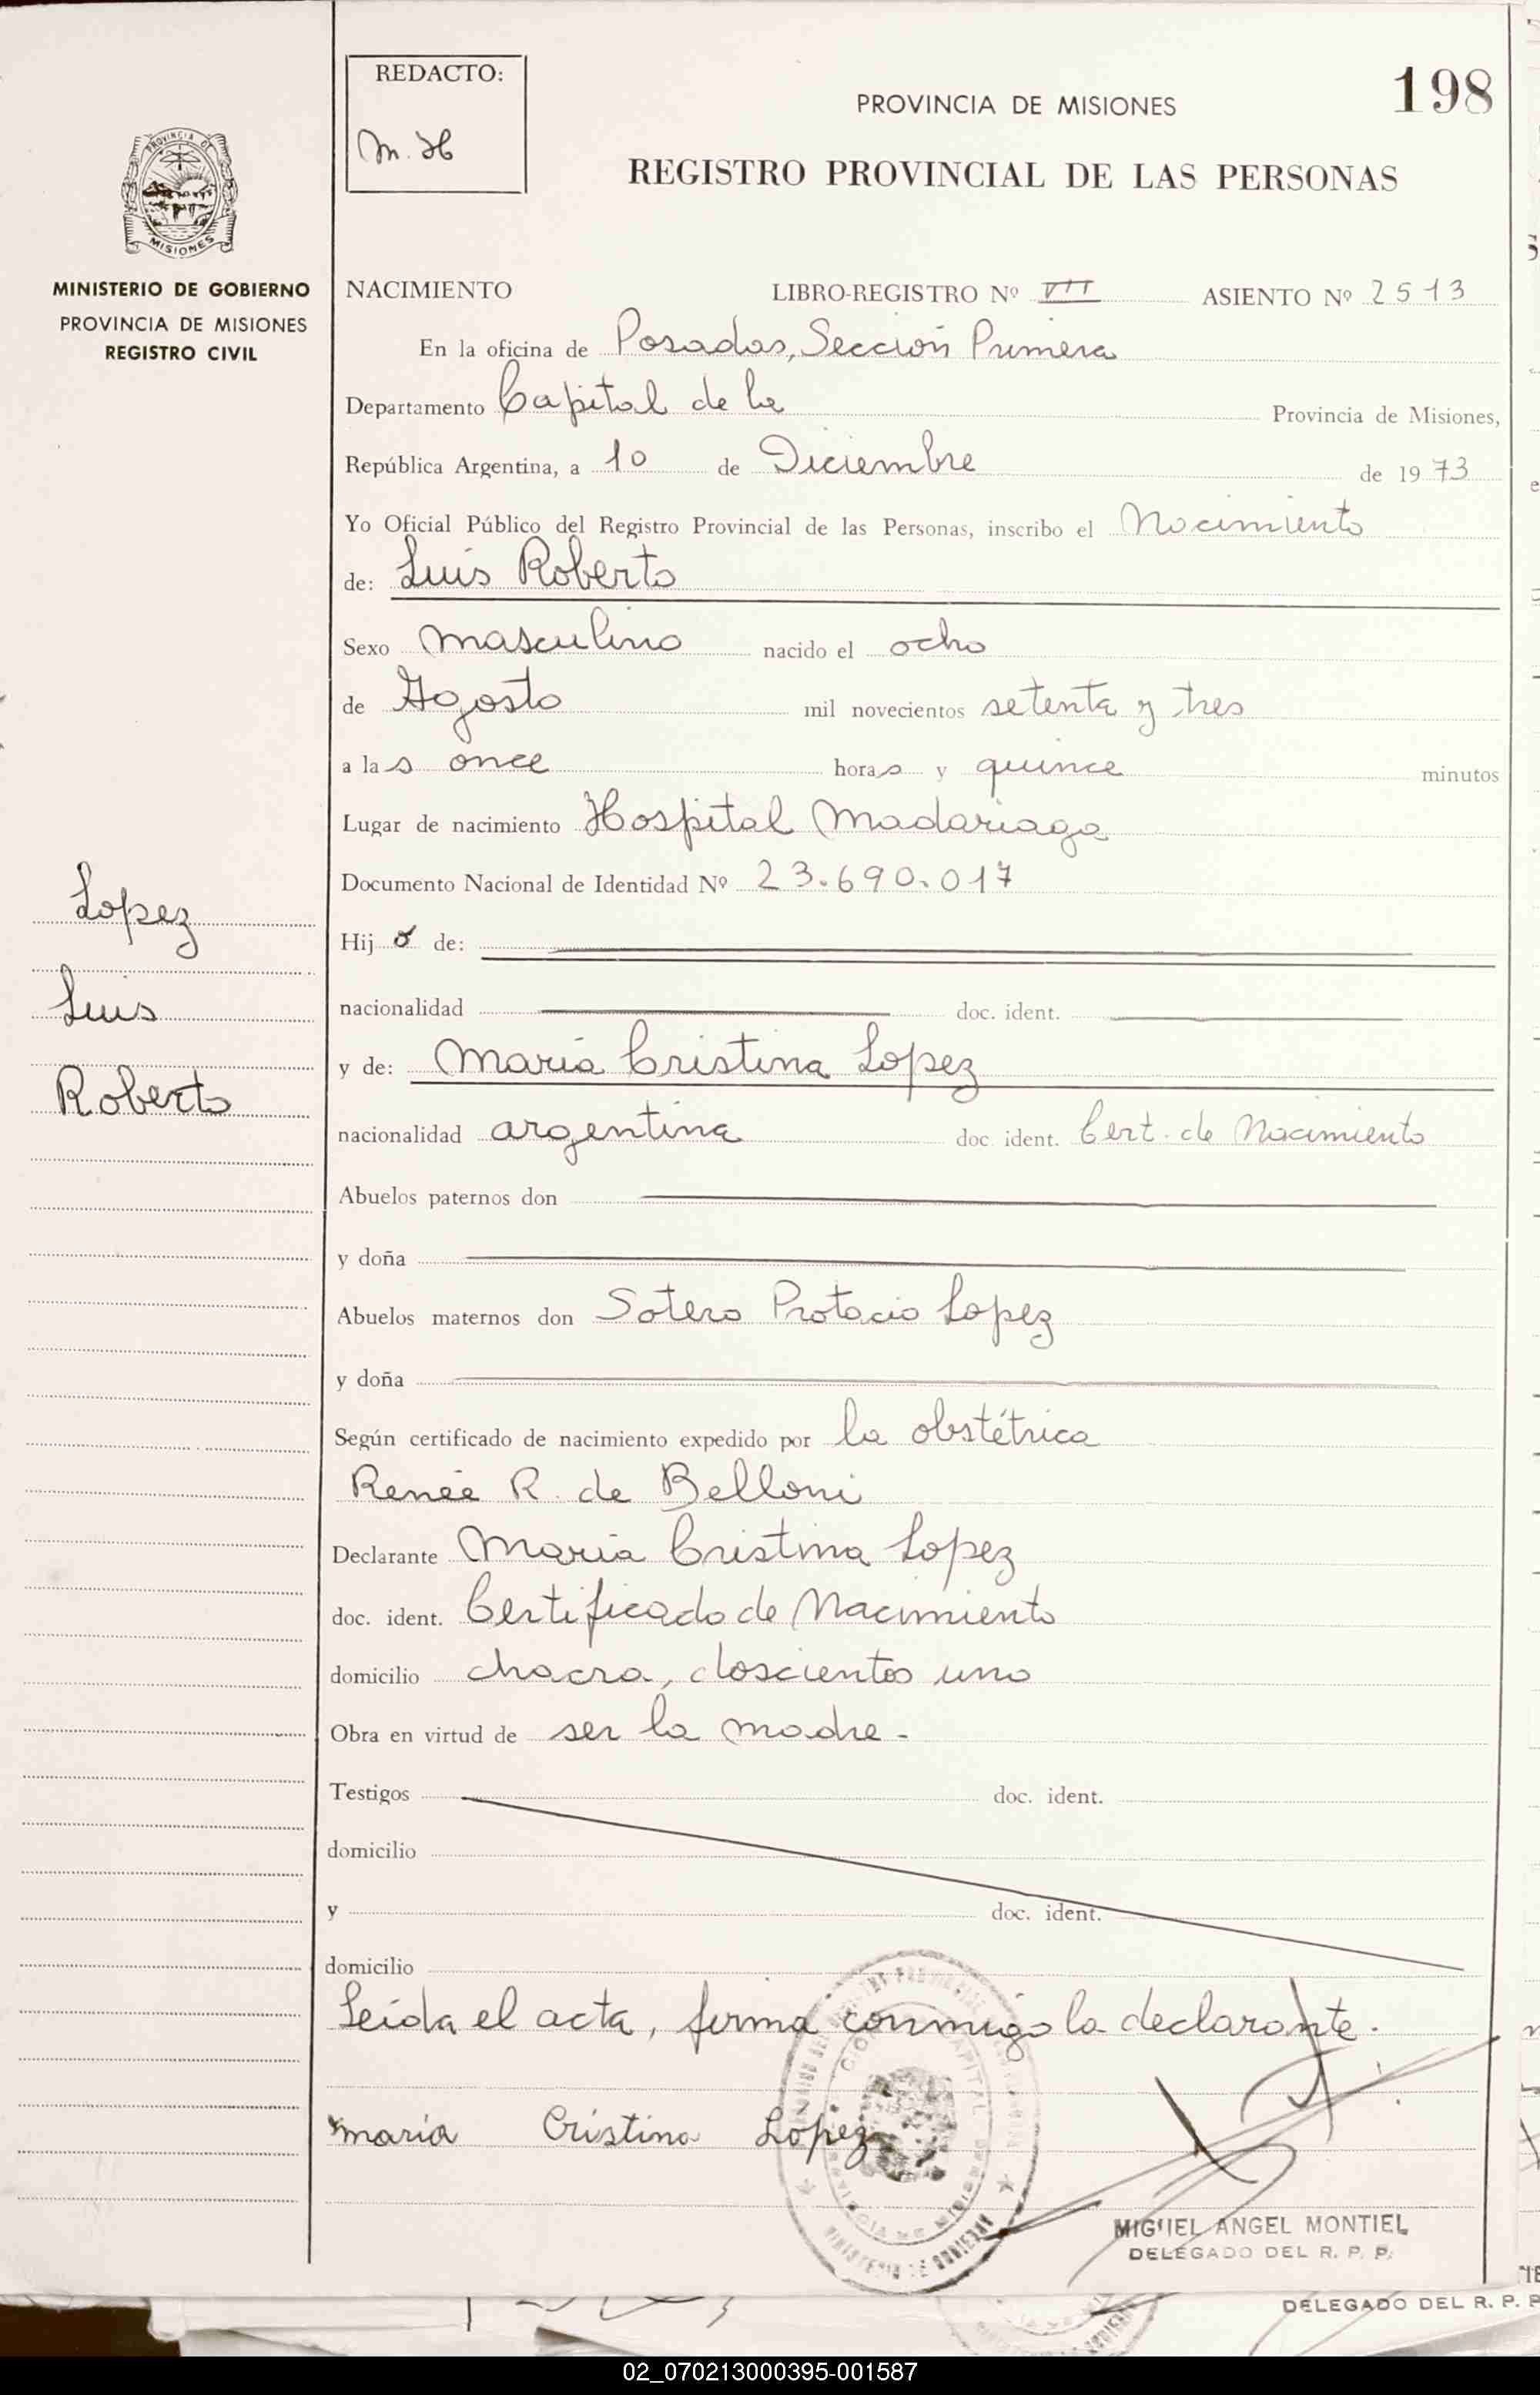 REDACTO:
M. H
198
PROVINCIA DE MISIONES
REGISTRO PROVINCIAL DE LAS PERSONAS
PROVINCIA DE
MISIONES
MINISTERIO DE GOBIERNO
PROVINCIA DE MISIONES
REGISTRO CIVIL
NACIMIENTO LIBRO-REGISTRO Nº VII ASIENTO Nº 2513
En la oficina de Posadas, Sección Primera
Departamento Capital de la Provincia de Misiones,
República Argentina, a 10 de Diciembre de 1973
Yo Oficial Público del Registro Provincial de las Personas, inscribo el Nacimiento
de: Luis Roberto
Sexo masculino nacido el ocho
de Agosto mil novecientos setenta y tres
a las once horas y quince minutos
Lugar de nacimiento Hospital Madariaga
Documento Nacional de Identidad Nº 23.690.017
Lopez
Luis
Roberto
Hijo de:
nacionalidad doc. ident.
y de: Maria Cristina Lopez
nacionalidad argentina doc ident. Cert. de Nacimiento
Abuelos paternos don
y doña
Abuelos maternos don Sotero Protacio Lopez
y doña
Según certificado de nacimiento expedido por la obstétrica
Renée R. de Belloni
Declarante Maria Cristina Lopez
doc. ident. Certificado de Nacimiento
domicilio chacra, doscientos uno
Obra en virtud de ser la madre.-
Testigos doc. ident.
domicilio
y doc. ident.
domicilio
Leída el acta, firma conmigo la declarante.
maria Cristina Lopez
MIGUEL ANGEL MONTIEL
DELEGADO DEL R. P. P.
DELEGADO DEL R. P. P
02_070213000395-001587